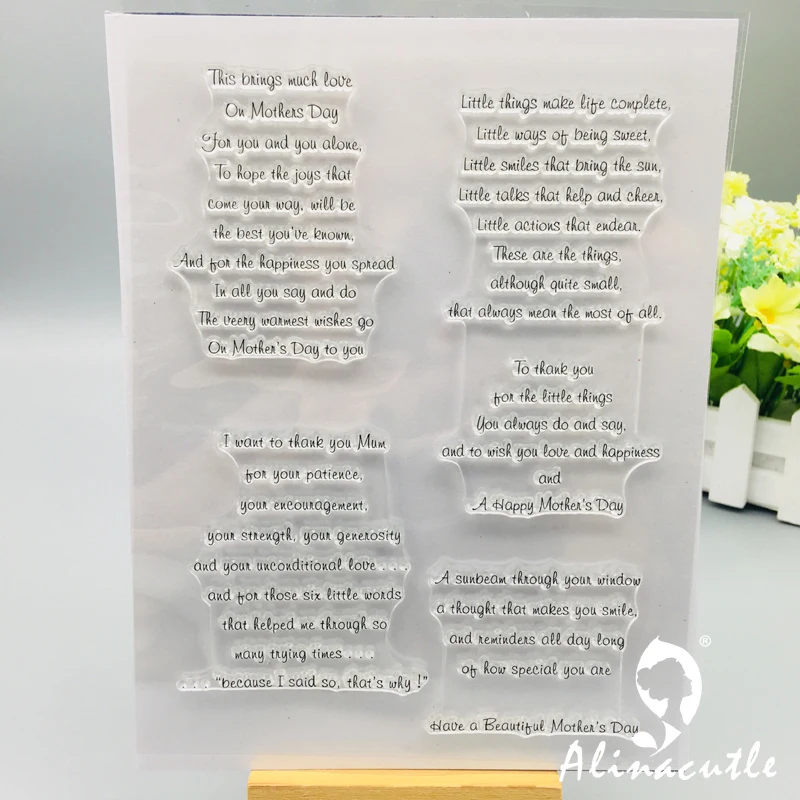 This brings much love
On Mothers Day
For you and you alone,
To hope the joys that
come your way, will be
the best you've known,
And for the happiness you spread
In all you say and do
The veery warmest wishes go
On Mother's Day to you
I want to thank you Mum
for your patience,
your encouragement,
your strength, your generosity
and your unconditional love . . .
and for those six little words
that helped me through so
many trying times . . .
. . . "because I said so, that's why !"
Little things make life complete,
Little ways of being sweet,
Little smiles that bring the sun,
Little talks that help and cheer,
Little actions that endear.
These are the things,
although quite small,
that always mean the most of all.
To thank you
for the little things
You always do and say,
and to wish you love and happiness
and
A Happy Mother's Day
A sunbeam through your window
a thought that makes you smile,
and reminders all day long
of how special you are
Have a Beautiful Mother's Day
®
Alinacutle